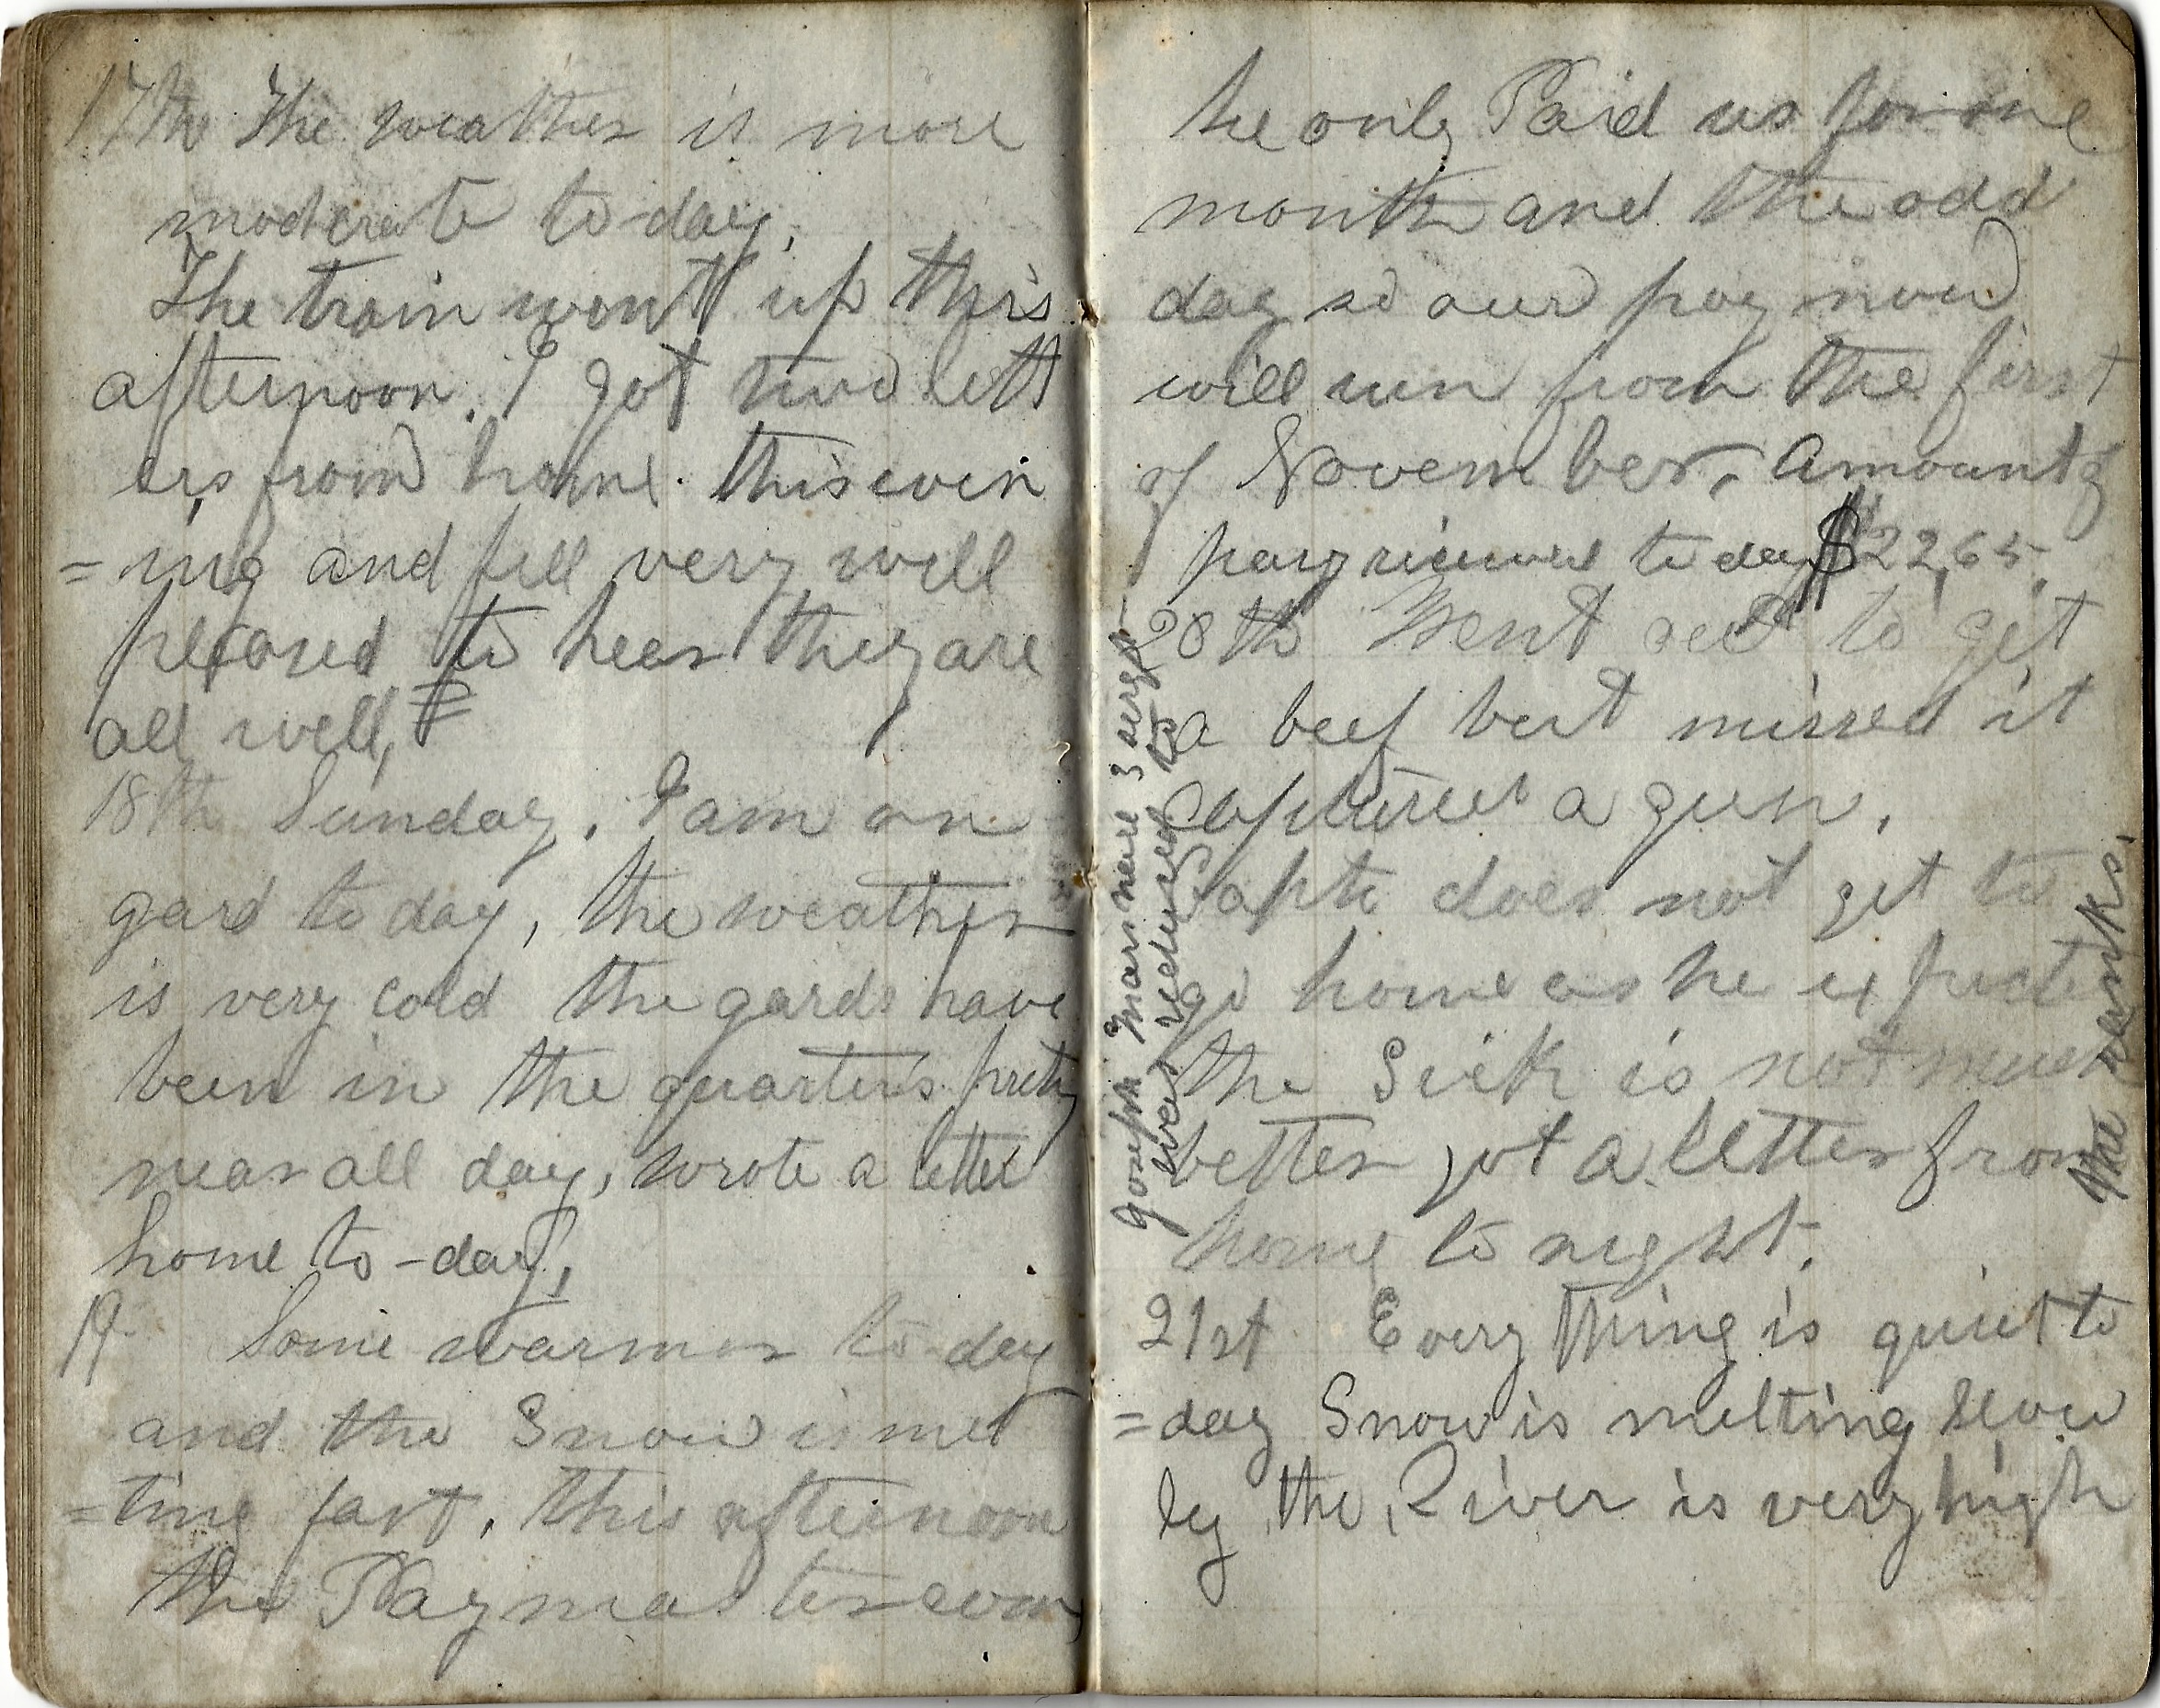 17th The weather is more
moderate to day,
The train went up this
afternoon. I got two lett
ers from home this even
=ing and fell very well
pleased to hear they are
all well,
18th Sunday. I am on
gard to day, the weather
is very cold the gards have
been in the quarters prety
near all day, wrote a letter
home to-day,
19 Some warmer to day
and the Snow is mel
=ting fast, this afternoon
the Paymaster com
he only Paid us for one
month and the odd
day so our pay now
will run from the first
of November, Amount of
pay recieved to day $22,65.
20th Went out to get
a beef but missed it
Captured a gun,
Capt does not get to
go home as he expects
the Sick is not much
better got a letter from
home to night,
21st Every thing is quiet to
=day Snow is melting slow
ly the River is very high
Joseph 3 sergt
was reduced to
the ranks.